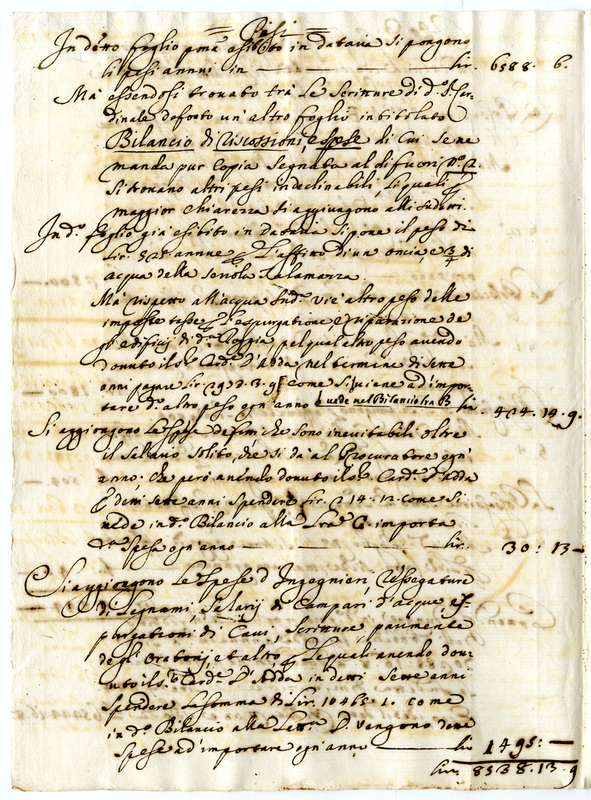 = Pesi =
In detto foglio pma esibito in dataria si pongono
li pesi annui in — lir. 6588. 6.
Mà essendosi trovato trà le Scritture di d.º S. Car-
dinale defonto un'altro foglio intitolato
Bilancio di riscossioni, e spese di cui se ne
manda pur Copia segnata al di fuori N.º 2.
Si trovano altri pesi indeclinabili, le quali
maggior chiarezza si aggiungono alli sudetti.
In d.º foglio già esibito in Dataria si pone il peso di
lir. annue l'affitto di un oncia e 3/4 di
acqua della Senola Talamazza.
Mà rispetto all'acqua sud.ª vi è altro peso delle
imposte tasse l'espurgatione, e riparatione de
gl' edificij di d.ª Roggia, pel qual altro peso avendo
dovuto il Card. D'Adda nel termine di sette
anni pagar lir. 29 d. 3. 9 come si viene ad impor-
tare d.º altro peso ogni anno vede nel Bilancio lra B lir. 424. 14. 9.
Si aggiongono le spese de che sono inevitabili oltre
il Salario solito, che si dà al Procuratore ogn'
anno; che però avendo dovuto il Card. D'Adda
detti sette anni spendere lir. 214. 12. come si
vede in d.º Bilancio alla lra C. importa
Spesa ogn'anno — lir. 30: 13 –
Si aggiongono le Spese d'Ingegnieri, Ressegature
di Legnami, Salarij di Campari d'acque, es-
purgationi di Cavi, Scritture, parimente
degl' Oratorij, et altro, le quali avendo dou-
uto il S. Card.e D'Adda in detti sette anni
spendere la somma di lir. 10465. 1. come
in d.º Bilancio alla Lett.a D. vengono dette
spese ad importare ogn'anno — lir 1495: —
lir. 8538. 13. 9